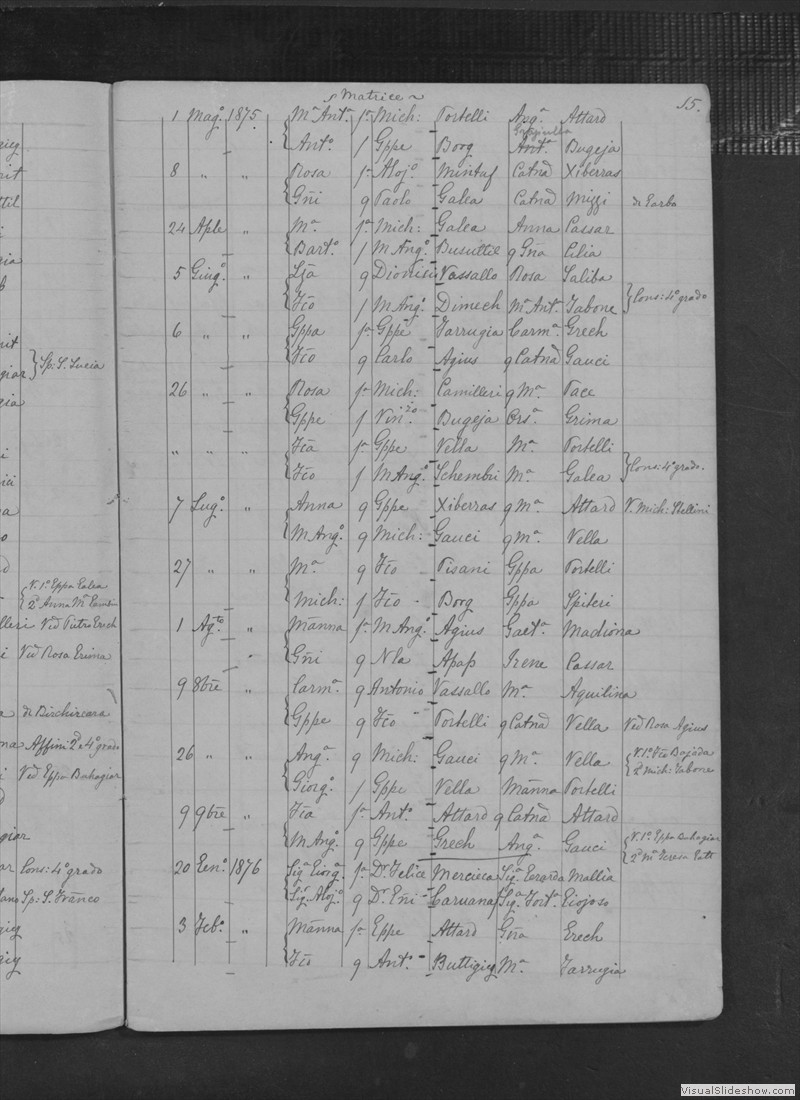 Matrice
15.
1 Mag.º 1875 Mª Antª fª Mich: Portelli Angª Attard
Graziulla
Antº f Gppe Borg Antª Bugeja
8 " " Rosa fª Alojº Mintuf Catnã Xiberras
Gñi q Paolo Galea Catnã Mizzi
24 Aple " Mª fª Mich: Galea Anna Cassar
Bartº f M Angº Busuttil q Gña Cilia
5 Giugº " q Dionisio Vassallo Rosa Saliba
Fcõ f M Angº Dimech Mª Ant. Tabone Cons: 4º grado
6 " " Gppa fª Gppe Farrugia Carmª Grech
Fcõ q Carlo Agius q Catnã Gauci
26 " " Rosa fª Mich: Camilleri q Mª Pace
Gppe f Vinzo Bugeja Orsª Grima
" " " Fcã fª Gppe Vella Mª Portelli
Fcõ f M Angº Schembri Mª Galea Cons: 4º grado.
7 Lugº " Anna q Gppe Xiberras q Mª Attard V. Mich: Stellini
M Angº q Mich: Gauci q Mª Vella
27 " " Mª q Fcõ Pisani Gppa Portelli
Mich: f Fcõ Borg Gppa Spiteri
1 Agto " Mãnna fª M Angº Agius Gaetª Madiona
Gñi q Nla Apap Irene Cassar
9 8bre " Carmª q Antonio Vassallo Mª Aquilina
Gppe q Fcõ Portelli q Catnã Vella Ved Rosa Agius
26 " " Angª q Mich: Gauci q Mª Vella V. 1º Fcõ Bajada
2º Mich: Tabone
Giorgº f Gppe Vella Mãnna Portelli
9 9bre " Fcã fª Antº Attard q Catnã Attard
M Angº q Gppe Grech Angª Gauci V. 1º Gppa Buhagiar
2º Mª Teresa
20 Genº 1876 Sigª Giorgª fª Dr Felice Mercieca Sigª Gerarda Mallia
Sigr Alojº q Dr Eni Caruana Sigª Fortª Giojoso
3 Febº " Mãnna fª Gppe Attard Gña Grech
Fcõ q Antº Buttigieg Mª Farrugia
Sp: S. Lucia
V. 1º Gppa Galea
2º Anna Mª
Ved Pietro Grech
Ved Rosa Grima
di Birchircara
Affini 2º e 4º grado
Ved Gppa Buhagiar
Cons: 4º grado
Sp: S. Franco
VisualSlideshow.com